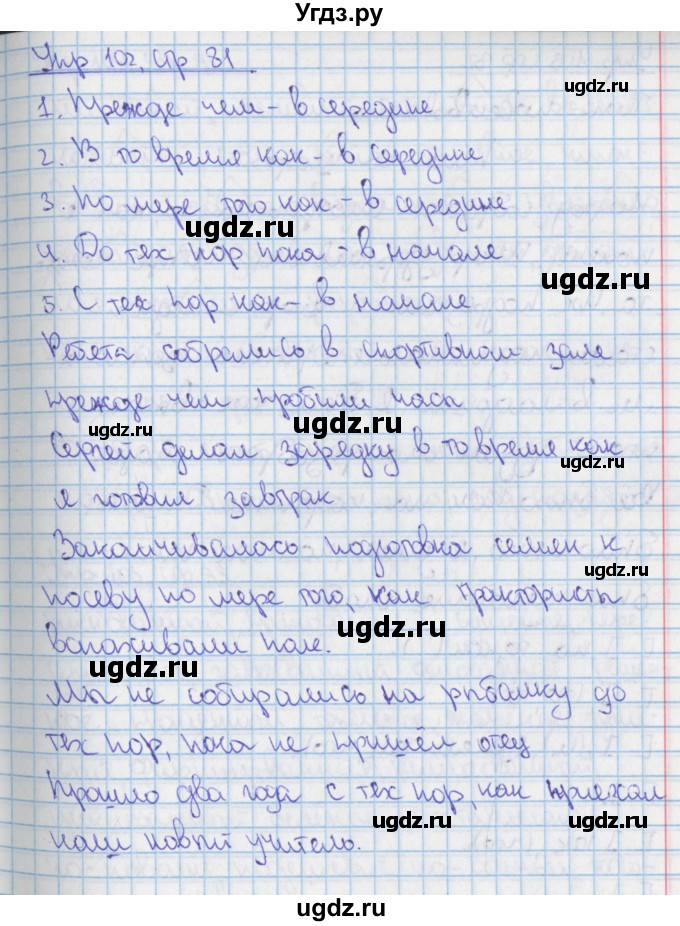 Угдз.ру
Упр 102, стр 31
ugdz.ru
1. Прежде чем - в середине
ugdz.ru
2. В то время как - в середине
3. По мере того как - в середине
ugdz.ru
4. До тех пор пока - в начале
ugdz.ru
5. С тех пор как - в начале
Ребята собрались в спортивном зале
прежде чем пробили часы
ugdz.ru
ugdz.ru
Сергей делал зарядку в то время как
ugdz.ru
я готовил завтрак
Заканчивалась подготовка семян к
ugdz.ru
посеву по мере того, как трактористы
ugdz.ru
вспахивали поле.
ugdz.ru
Мы не собирались на рыбалку до
тех пор, пока не пришёл отец
Прошло два года с тех пор, как приехал
ugdz.ru
ugdz.ru
наш новый учитель.
ugdz.ru